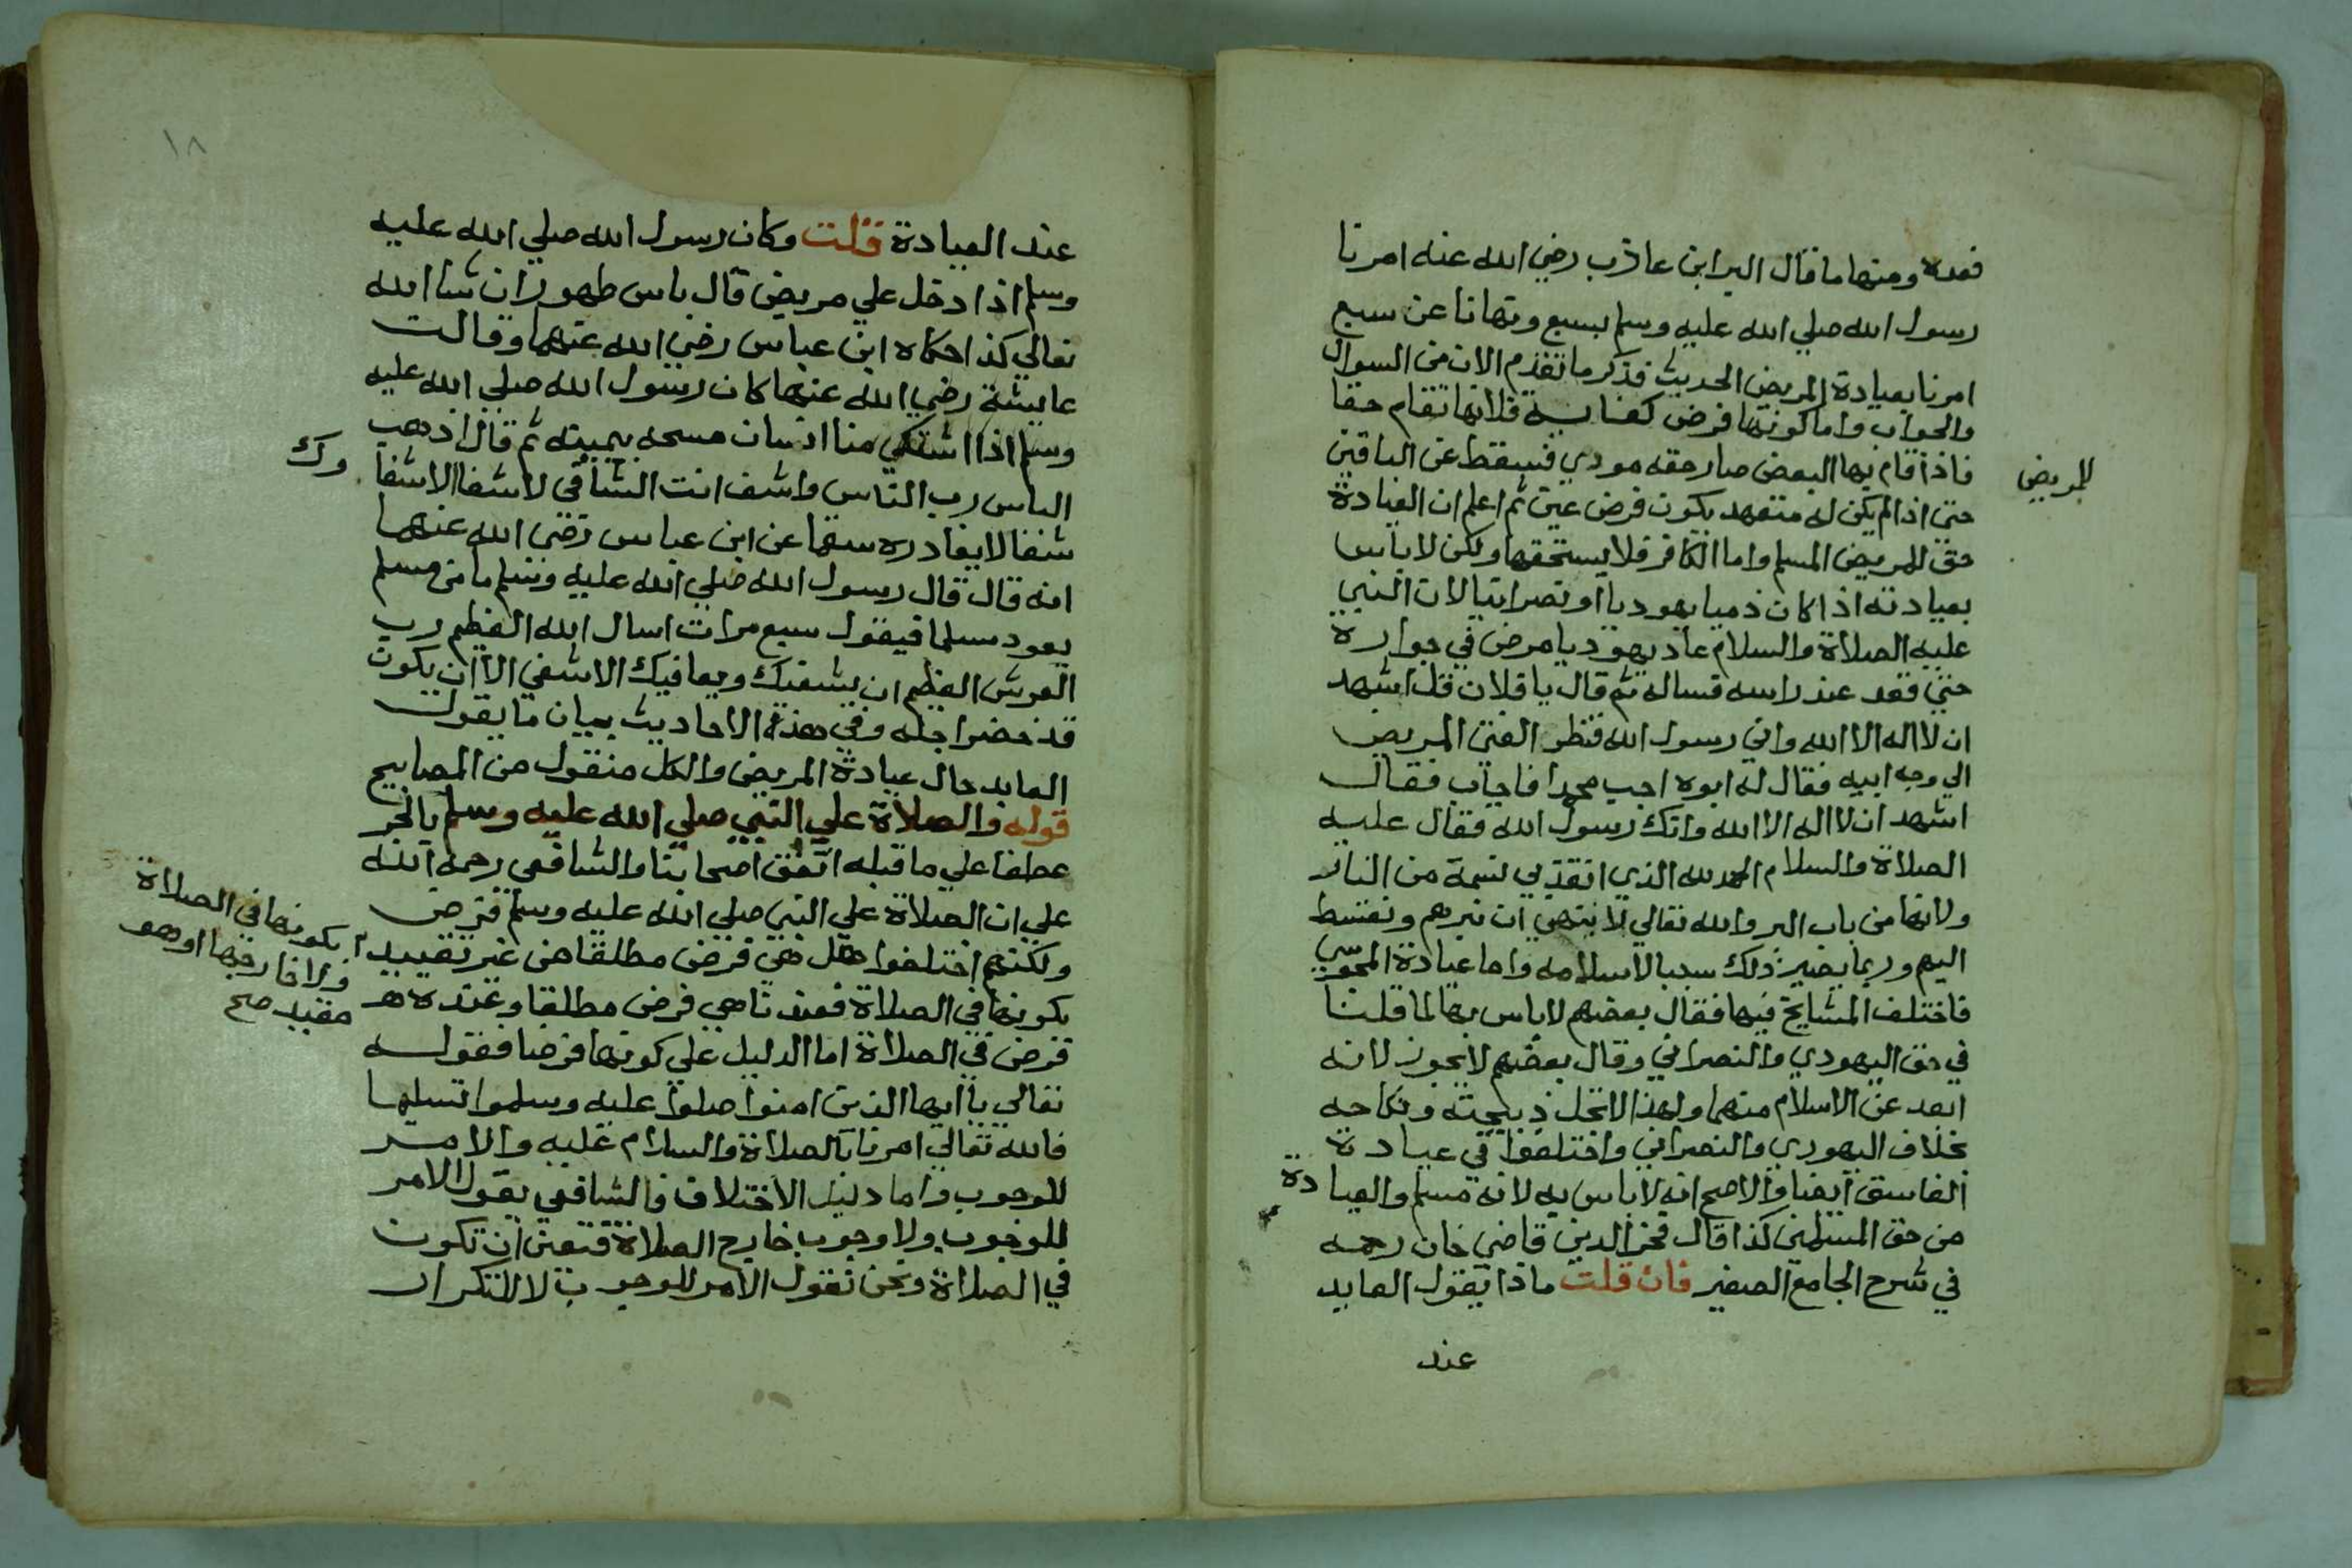 فعده ومنها ما قال البرا ابن عاذب رضي الله عنه امرنا
رسول الله صلي الله عليه وسلم بسبع ونهانا عن سبع
امرنا بعيادة المريض الحديث فذكر ما تقدم الان من السوال
والجواب واما كونها فرض كفاية فلانها تقام حقا
للمريض
فاذا قام بها البعض صار حقه مودي فيسقط عن الباقين
حتي اذا لم يكن له متعهد يكون فرض عين ثم اعلم ان العيادة
حق للمريض المسلم واما الكافر فلا يستحقها ولكن لا باس
بعيادته اذا كان ذميا يهوديا او نصرانيا لان النبي
عليه الصلاة والسلام عاد يهوديا مرض في جواره
حتي قعد عند راسه فساله ثم قال يا فلان قل اشهد
ان لا اله الا الله واني رسول الله فنظر الفتي المريض
الي وجه ابيه فقال له ابوه اجب محمدا فاجاب فقال
اشهد ان لا اله الا الله وانك رسول الله فقال عليه
الصلاة والسلام الحمد لله الذي انقذ بي نسمة من النار
ولانها من باب البر والله تعالي لا ينهي ان نبرهم ونقسط
اليهم وربما يصير ذلك سببا لاسلامه واما عيادة المجوسي
فاختلف المشايخ فيها فقال بعضهم لا باس بها لما قلنا
في حق اليهودي والنصراني وقال بعضهم لا يجوز لانه
ابعد عن الاسلام منهما ولهذا لا تحل ذبيحته ونكاحه
بخلاف اليهودي والنصراني واختلفوا في عيادة
الفاسق ايضا والاصح انه لا باس به لانه مسلم والعيادة
من حق المسلمين كذا قال فخر الدين قاضي خان رحمه
في شرح الجامع الصغير فان قلت ماذا يقول العايد
عند
١٨
عند العيادة قلت وكان رسول الله صلي الله عليه
وسلم اذا دخل علي مريض قال باس طهور ان شا الله
تعالي كذا حكاه ابن عباس رضي الله عنهما وقالت
عايشة رضي الله عنها كان رسول الله صلي الله عليه
وسلم اذا اشتكي منا انسان مسحه بيمينه ثم قال اذهب
الباس رب الناس واشف انت الشافي لا شفا الا شفا
وك
شفا لا يغادره سقما عن ابن عباس رضي الله عنهما
انه قال قال رسول الله صلي الله عليه وسلم ما من مسلم
يعود مسلما فيقول سبع مرات اسال الله العظيم رب
العرش العظيم ان يشفيك ويعافيك الا شفي الا ان يكون
قد حضر اجله وفي هذه الاحاديث بيان ما يقول
العايد حال عيادة المريض والكل منقول من المصابيح
قوله والصلاة علي النبي صلي الله عليه وسلم بالجر
عطفا علي ما قبله اتفق اصحابنا والشافعي رحمه الله
علي ان الصلاة علي النبي صلي الله عليه وسلم فرض
ولكنهم اختلفوا هل هي فرض مطلقا من غير تقييد
بكونها في الصلاة
ولا خارجها او هو
مقيد صح
بكونها في الصلاة فعندنا هي فرض مطلقا وعنده هـ
فرض في الصلاة اما الدليل علي كونها فرضا فقوله
تعالي يا ايها الذين امنوا صلوا عليه وسلموا تسليما
فالله تعالي امرنا بالصلاة والسلام عليه والامر
للوجوب واما دليل الاختلاف فالشافعي يقول الامر
للوجوب ولا وجوب خارج الصلاة فتعين ان تكون
في الصلاة ونحن نقول الامر للوجوب لا للتكرار